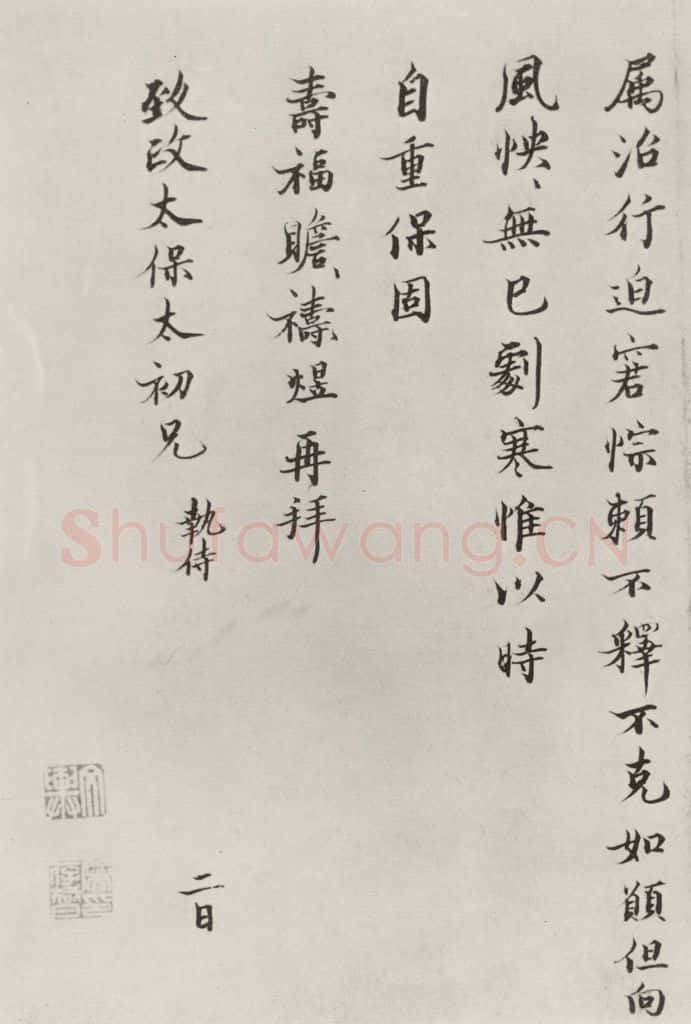 属治行迫窘悰頼不釋不克如顚但向
風怏、無已劇寒惟以時
自重保固
壽福瞻、禱煜再拜
致政太保太初兄 執侍
二日
Shufawang.CN